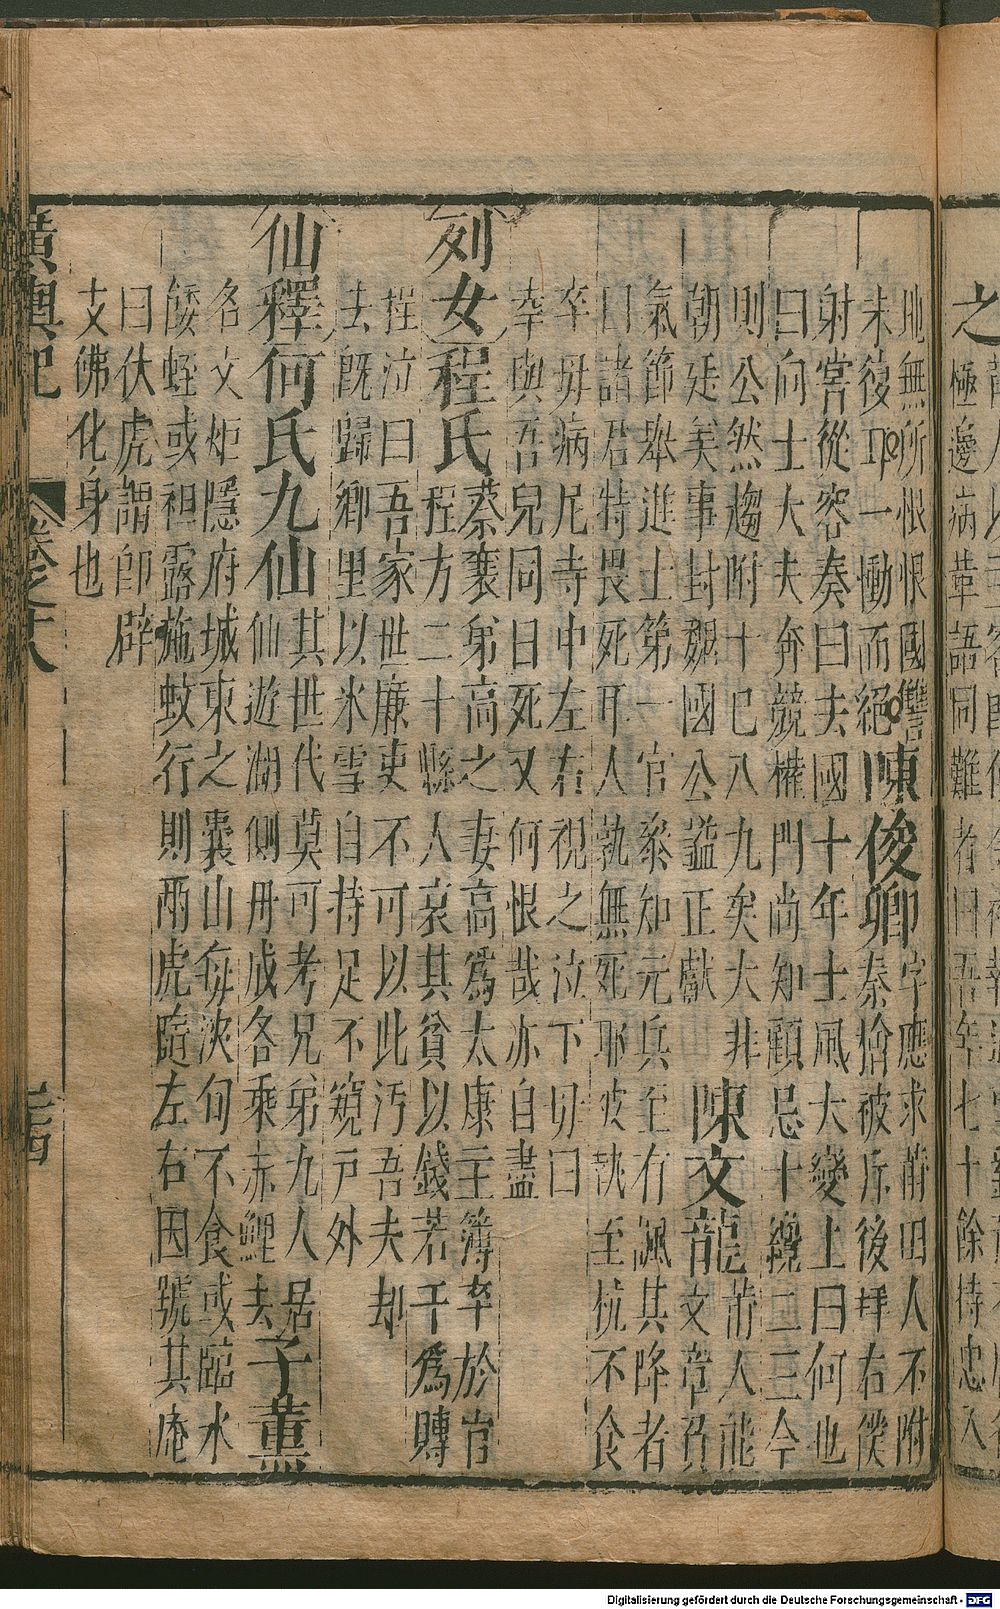 之
極邊病革語同難者曰吾年七十餘持忠入
地無所恨恨國讐
未復耶一慟而絕
陳俊卿
字應求莆田人不附
秦檜被斥後拜右僕
射嘗從容奏曰去國十年士風大變上曰何也
曰向士大夫奔競權門尚知顧忌十纔二三今
則公然趨附十巳八九矣大非
朝廷矣事封魏國公謚正獻
陳文龍
莆人能
文章負
氣節舉進士第一官參知元兵至有諷其降者
曰諸君特畏死耳人孰無死耶被執至杭不食
卒母病尼寺中左右視之泣下母曰
幸與吾兒同日死又何恨哉亦自盡
列女程氏
蔡襄弟高之妻高爲太康主簿卒於官
程方二十縣人哀其貧以錢若干爲賻
程泣曰吾家世廉吏不可以此污吾夫却
去旣歸鄉里以氷雪自持足不窺戸外
仙釋何氏九仙
其世代莫可考兄弟九人居
仙遊湖側丹成各乘赤鯉去
子薰
名文炬隱府城東之囊山每浹旬不食或臨水
餧蛭或袒露施蚊行則兩虎隨左右因號其庵
曰伏虎謂即辟
支佛化身也
廣輿記 卷之十八
Digitalisierung gefördert durch die Deutsche Forschungsgemeinschaft - DFG